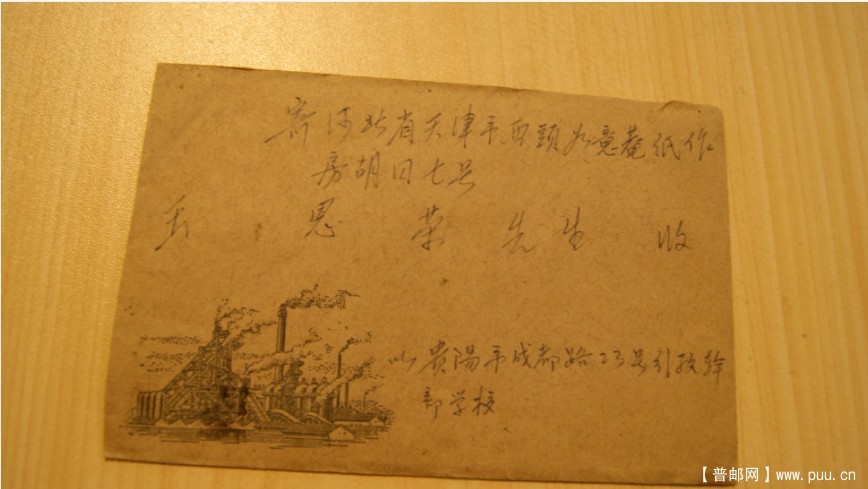 寄河北省天津市西頭如意菴纸作
房胡同七号
思 荣 先 生 收
贵陽市成都路23号 幹
部学校
【普邮网】www.puu.cn